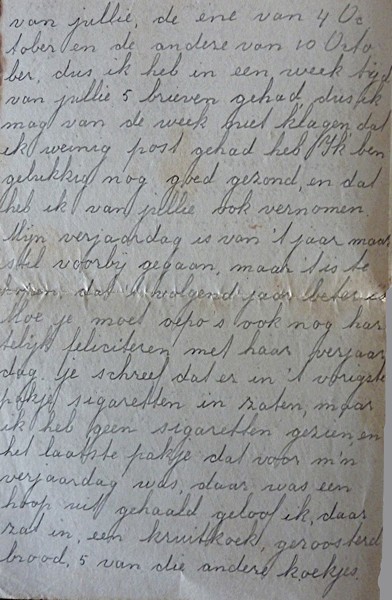 van jullie, de ene van 4 Oc
tober en de andere van 10 Octo
ber, dus ik heb in een week tijd
van jullie 5 brieven gehad, dus ik
mag van de week niet klagen dat
ik weinig post gehad heb, Ik ben
gelukkig nog goed gezond, en dat
heb ik van jullie ook vernomen
Mijn verjaardag is van 't jaar maar
stil voorbij gegaan, maar 't is te
hopen, dat 't volgend jaar beter is
Moe je moet oepo's ook nog har
telijk feliciteren met haar verjaar
dag. je schreef dat er in 't vorigste
pakje sigaretten in zaten, maar
ik heb geen sigaretten gezien, en
het laatste pakje dat voor m'n
verjaardag was, daar was een
hoop uit gehaald geloof ik, daar
zat in, een kruitkoek, geroosterd
brood, 5 van die andere koekjes.